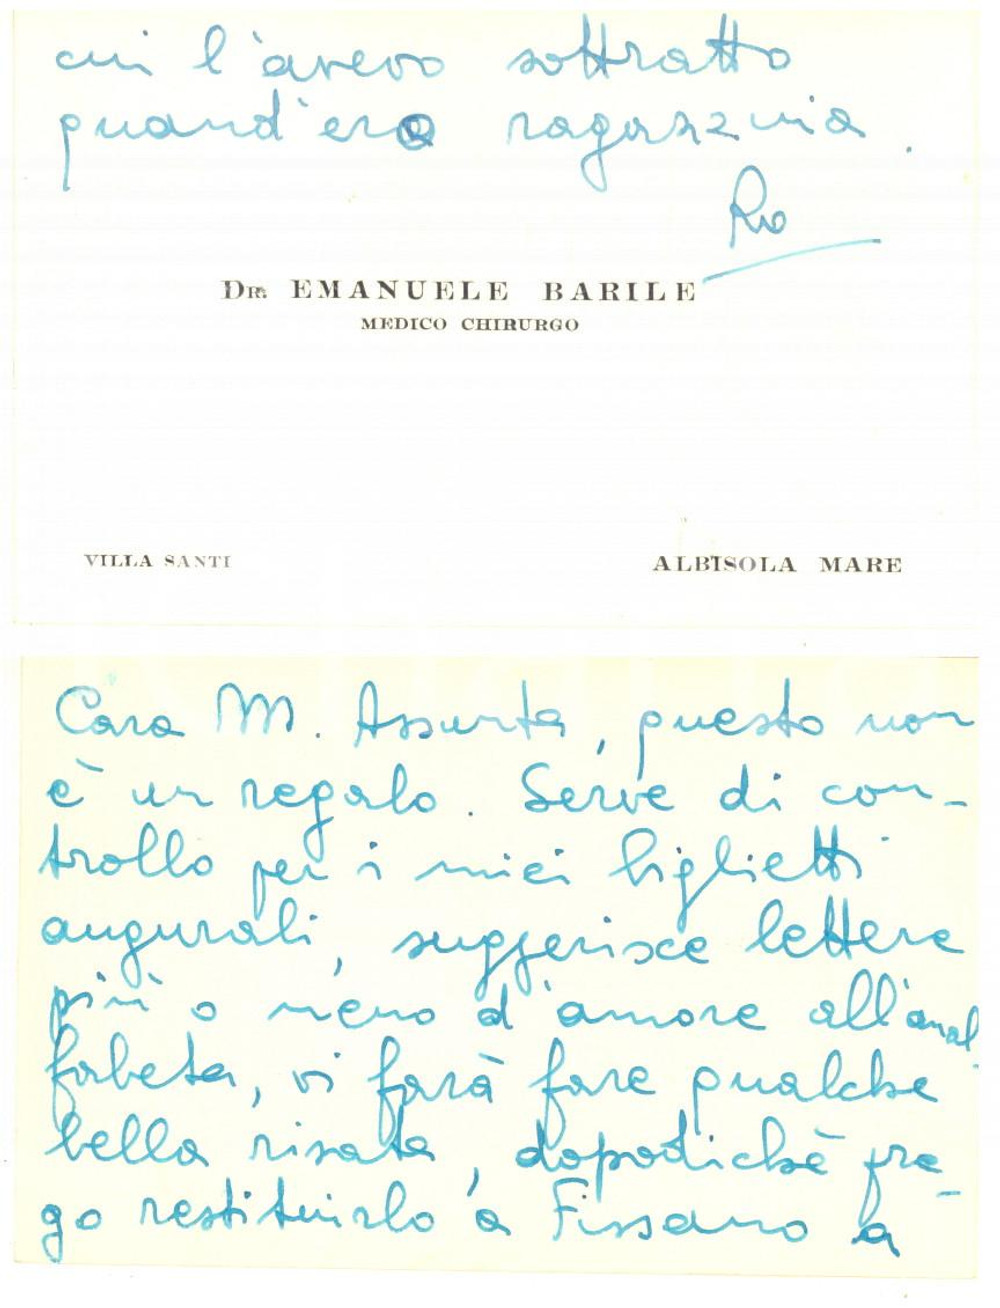 cui l'avevo sottratto
quand'era ragazzina.
Ro
DR. EMANUELE BARILE
MEDICO CHIRURGO
VILLA SANTI
ALBISOLA MARE
Cara M. Assunta, questo non
è un regalo. Serve di con-
trollo per i miei biglietti
augurali, suggerisce lettere
più o meno d'amore all'anal-
fabeta, vi farà fare qualche
bella risata, dopodichè pre-
go restituirlo a Fissano a